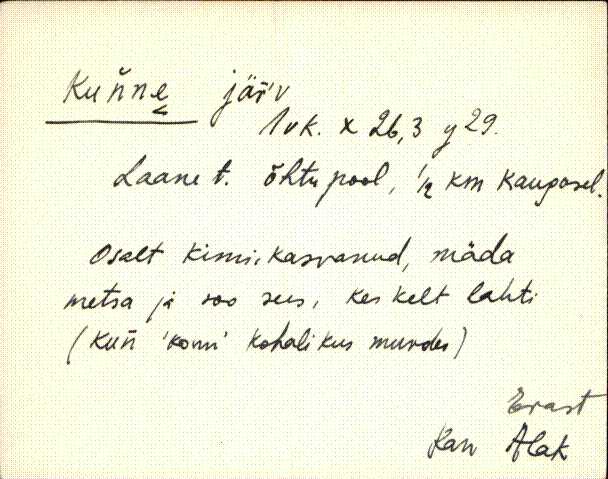 Kuńne järv
1vk. x 26,3 y 29.
Laane t. õhtu pool, 1/2 km kaugusel.
Osalt kinni kasvanud, mäda
metsa ja soo sees, keskelt lahti
(kuń 'konn' kohalikus murdes)
Erast
Kan Alak